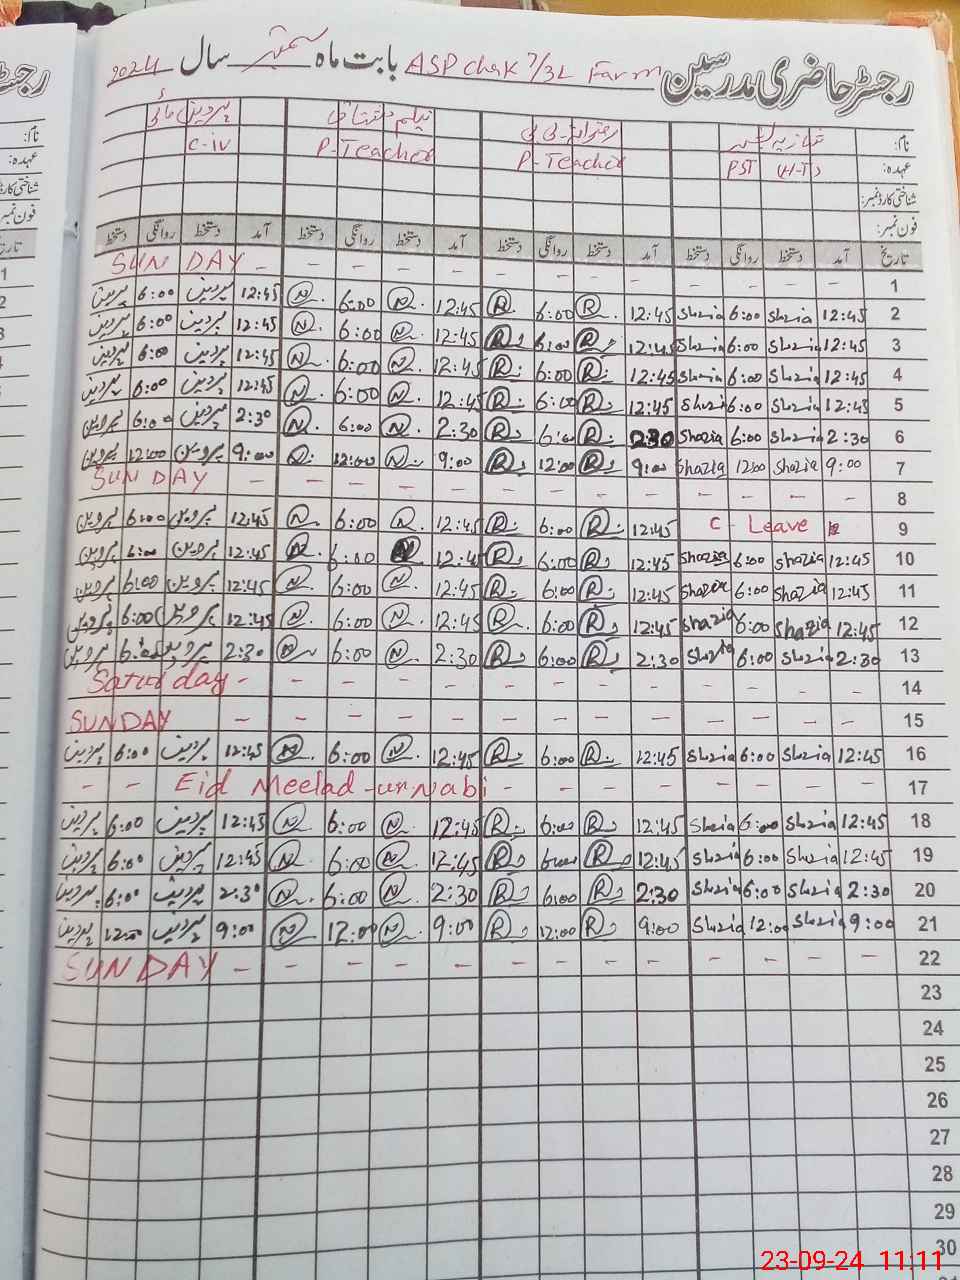 رجسٹر حاضری مدرسین ASP chak 7/3L Farm بابت ماہ ستمبر سال 2024
نام: شازیہ رضوانہ بی بی نیلم مشتاق پروین مائی
عہدہ: PST (H-T) P-Teacher P-Teacher C-iv
شناختی کارڈ نمبر:
فون نمبر:
تاریخ آمد دستخط روانگی دستخط آمد دستخط روانگی دستخط آمد دستخط روانگی دستخط آمد دستخط روانگی دستخط
1 - - - - - - - - - - - - - SUNDAY
2 12:45 Shazia 6:00 Shazia 12:45 R 6:00 R 12:45 N 6:00 N 12:45 پروین 6:00 پروین
3 12:45 Shazia 6:00 Shazia 12:45 R 6:00 R 12:45 N 6:00 N 12:45 پروین 6:00 پروین
4 12:45 Shazia 6:00 Shazia 12:45 R 6:00 R 12:45 N 6:00 N 12:45 پروین 6:00 پروین
5 12:45 Shazia 6:00 Shazia 12:45 R 6:00 R 12:45 N 6:00 N 12:45 پروین 6:00 پروین
6 2:30 Shazia 6:00 Shazia 2:30 R 6:00 R 2:30 N 6:00 N 2:30 پروین 6:00 پروین
7 9:00 Shazia 12:00 Shazia 9:00 R 12:00 R 9:00 N 12:00 N 9:00 پروین 12:00 پروین
8 - - - - - - - - - - - - - SUNDAY
9 C-Leave 12:45 R 6:00 R 12:45 N 6:00 N 12:45 پروین 6:00 پروین
10 12:45 Shazia 6:00 Shazia 12:45 R 6:00 R 12:45 N 6:00 N 12:45 پروین 6:00 پروین
11 12:45 Shazia 6:00 Shazia 12:45 R 6:00 R 12:45 N 6:00 N 12:45 پروین 6:00 پروین
12 12:45 Shazia 6:00 Shazia 12:45 R 6:00 R 12:45 N 6:00 N 12:45 پروین 6:00 پروین
13 2:30 Shazia 6:00 Shazia 2:30 R 6:00 R 2:30 N 6:00 N 2:30 پروین 6:00 پروین
14 - - - - - - - - - - - - - Saturday
15 - - - - - - - - - - - - - SUNDAY
16 12:45 Shazia 6:00 Shazia 12:45 R 6:00 R 12:45 N 6:00 N 12:45 پروین 6:00 پروین
17 - - - - - - - - Eid Meelad-un Nabi - -
18 12:45 Shazia 6:00 Shazia 12:45 R 6:00 R 12:45 N 6:00 N 12:45 پروین 6:00 پروین
19 12:45 Shazia 6:00 Shazia 12:45 R 6:00 R 12:45 N 6:00 N 12:45 پروین 6:00 پروین
20 2:30 Shazia 6:00 Shazia 2:30 R 6:00 R 2:30 N 6:00 N 2:30 پروین 6:00 پروین
21 9:00 Shazia 12:00 Shazia 9:00 R 12:00 R 9:00 N 12:00 N 9:00 پروین 12:00 پروین
22 - - - - - - - - - - - - - SUNDAY
23
24
25
26
27
28
29
30
23-09-24 11:11